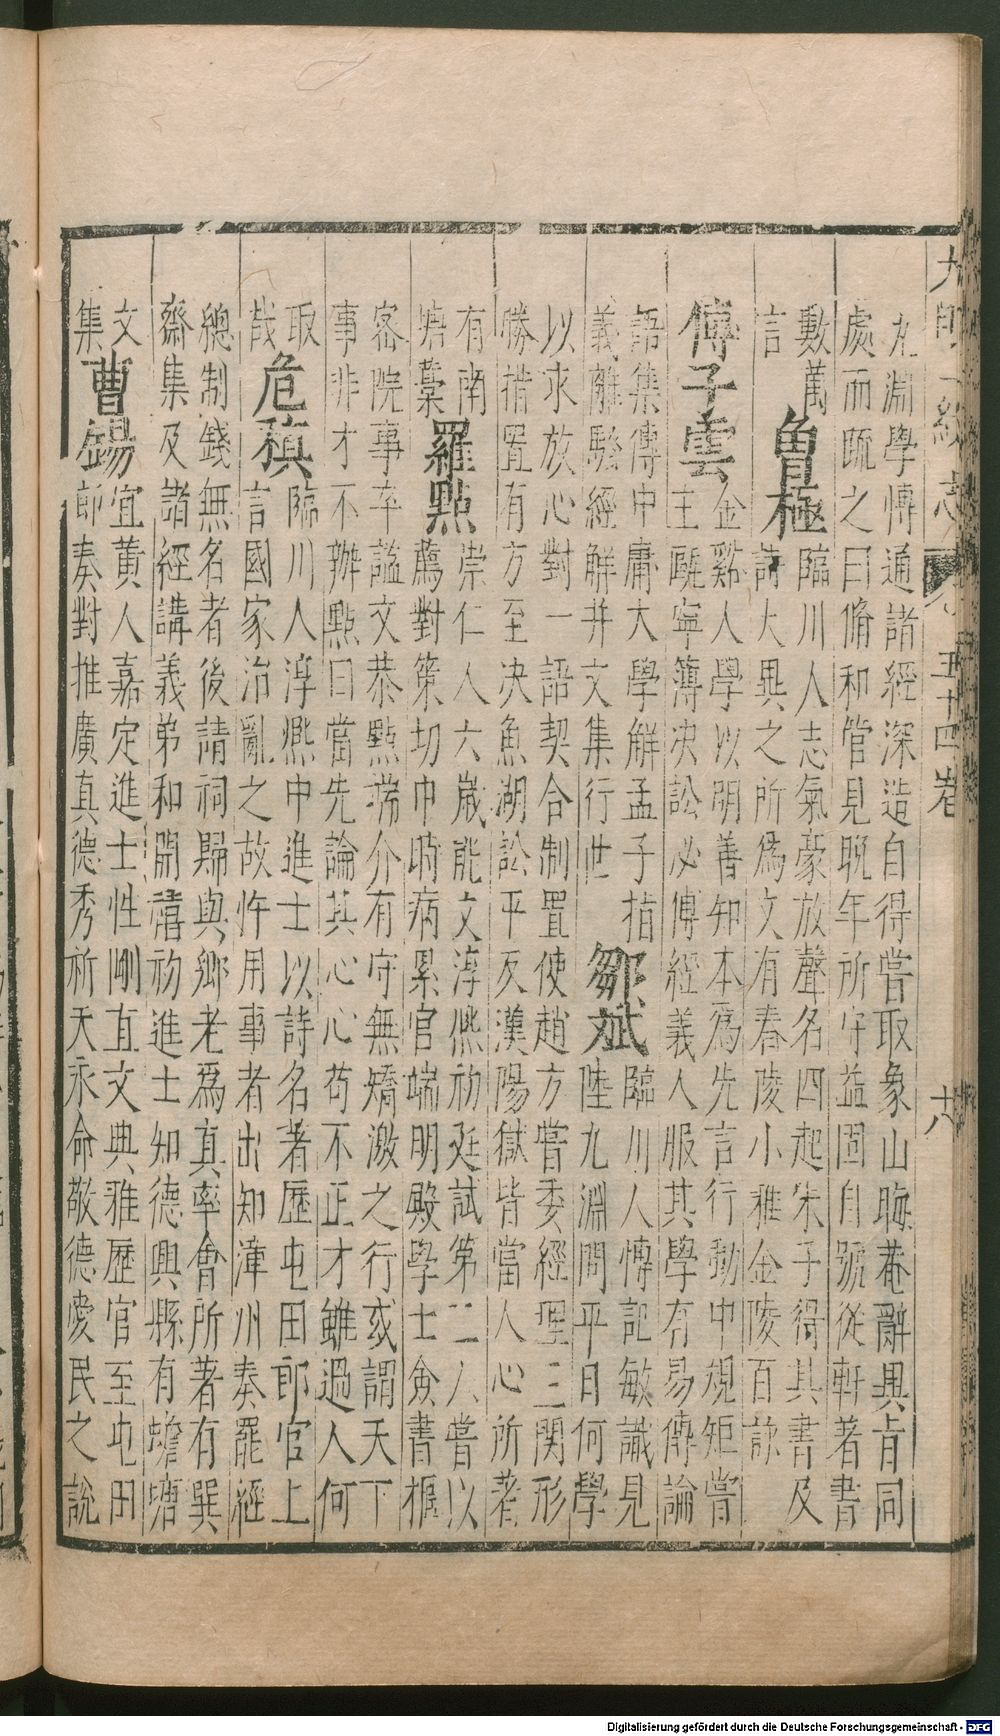 大明一統志 五十四卷 十八
九淵學愽通諸經深造自得嘗取象山晦菴辭異旨同
處而䟽之曰脩和管見晚年所守益固自號從軒著書
數萬
言
魯極
臨川人志氣豪放聲名四起朱子得其書及
詩大異之所爲文有春陵小雅金陵百詠
傅子雲
金谿人學以明善知本爲先言行動中規矩嘗
主甌寧簿決訟必傅經義人服其學有易傳論
語集傳中庸大學解孟子指
義離騷經解并文集行世
鄒斌
臨川人愽記敏識見
陸九淵問平日何學
以求放心對一語契合制置使趙方嘗委經理三関形
勝措置有方至決魚湖訟平反漢陽獄皆當人心所著
有南
塘藁
羅點
崇仁人六歲能文淳熈初廷試第二人嘗以
薦對策切中時病累官端明殿學士僉書樞
密院事卒謚文恭點端介有守無矯激之行或謂天下
事非才不辦點曰當先論其心心苟不正才雖過人何
取
哉
危稹
臨川人淳熈中進士以詩名著歷屯田郎官上
言國家治亂之故忤用事者出知漳州奏罷經
總制錢無名者後請祠歸與鄉老爲真率會所著有巽
齋集及諸經講義弟和開禧初進士知德興縣有蟾塘
文
集
曹錫
宜黃人嘉定進士性剛直文典雅歷官至屯田
郎奏對推廣真德秀祈天永命敬德愛民之說
Digitalisierung gefördert durch die Deutsche Forschungsgemeinschaft - DFG